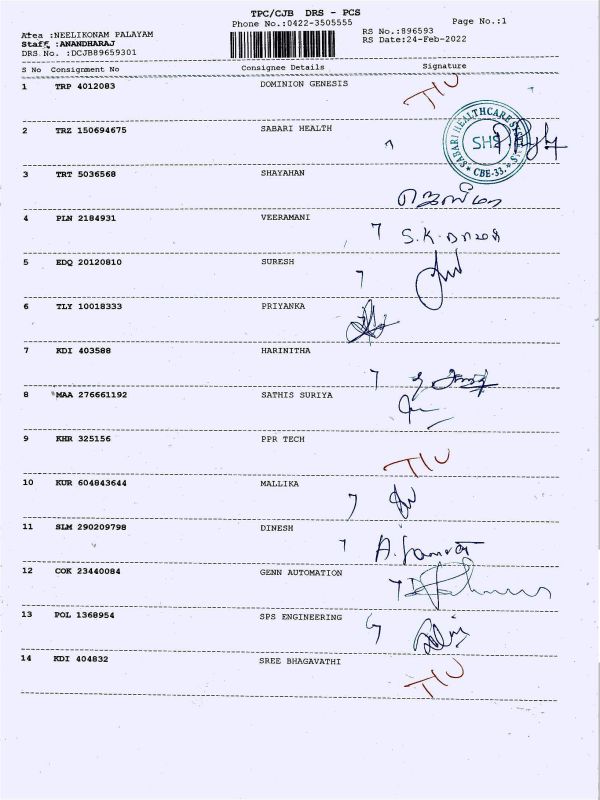 TPC/CJB DRS - PCS
Phone No.:0422-3505555
Page No.:1
Area :NEELIKONAM PALAYAM
RS No.:896593
Staff :ANANDHARAJ
RS Date:24-Feb-2022
DRS No. :DCJB89659301
S No Consignment No Consignee Details Signature
1 TRP 4012083 DOMINION GENESIS
2 TRZ 150694675 SABARI HEALTH
SABARI HEALTHCARE
SHS
CBE-33.
3 TRT 5036568 SHAYAHAN
4 PLN 2184931 VEERAMANI
S.K.
5 EDQ 20120810 SURESH
6 TLY 10018333 PRIYANKA
7 KDI 403588 HARINITHA
8 MAA 276661192 SATHIS SURIYA
9 KHR 325156 PPR TECH
10 KUR 604843644 MALLIKA
11 SLM 290209798 DINESH
12 COK 23440084 GENN AUTOMATION
13 POL 1368954 SPS ENGINEERING
14 KDI 404832 SREE BHAGAVATHI